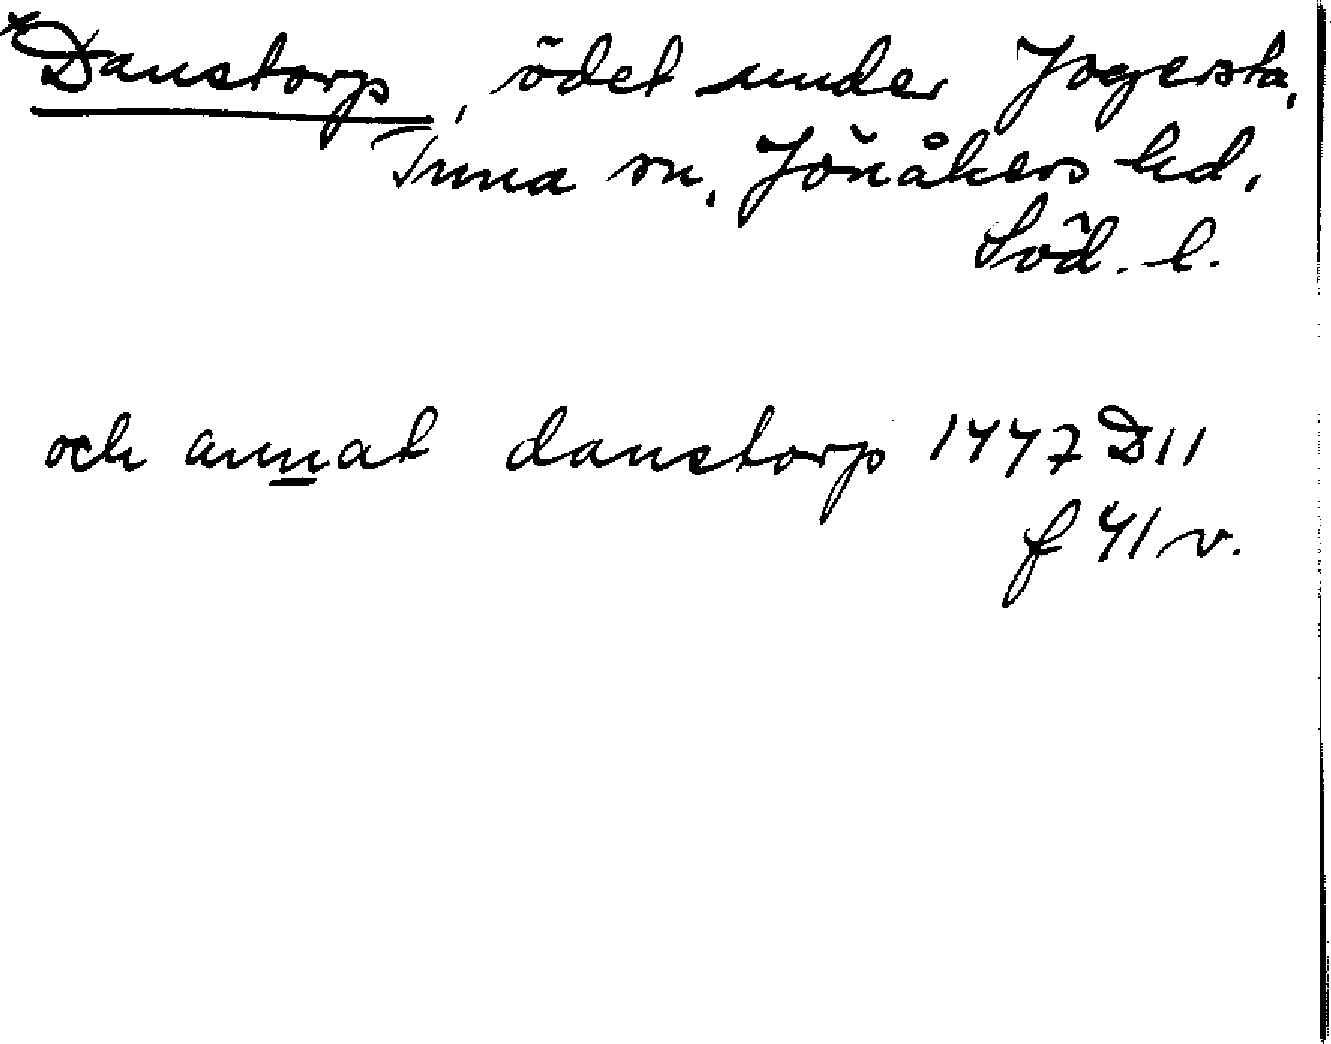 *Danstorp, ödet under Jogersta,
Tuna sn, Jönåkers hd,
Söd. l.
och annat danstorp 1447 D11
f 41 v.